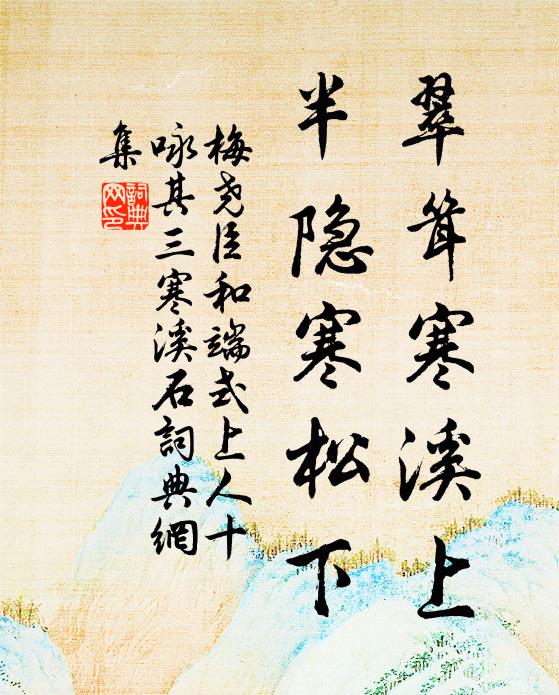 翠耸寒溪上
半隐寒松下
梅尧臣和端式上人十
咏其三寒溪石詞典網
集
詞典
网印